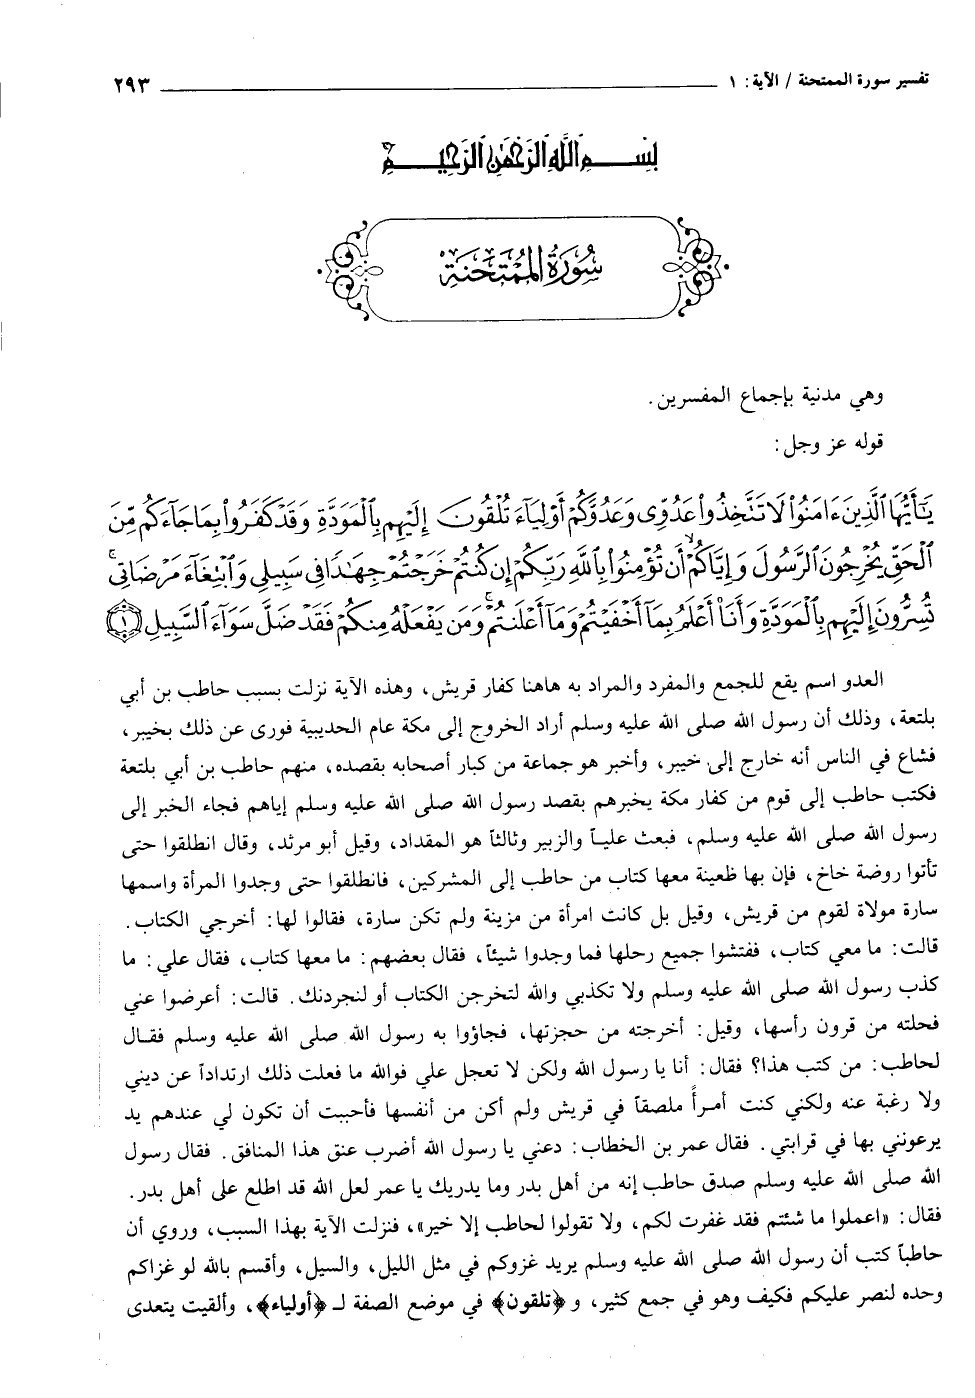 تفسير سورة الممتحنة / الآية: ١ ٢٩٣
بِسْمِ اللَّهِ الرَّحْمَٰنِ الرَّحِيمِ
سُورَةُ المُمْتَحَنَةِ
وهي مدنية بإجماع المفسرين.
قوله عز وجل:
يَٰٓأَيُّهَا ٱلَّذِينَ ءَامَنُوا۟ لَا تَتَّخِذُوا۟ عَدُوِّى وَعَدُوَّكُمْ أَوْلِيَآءَ تُلْقُونَ إِلَيْهِم بِٱلْمَوَدَّةِ وَقَدْ كَفَرُوا۟ بِمَا جَآءَكُم مِّنَ
ٱلْحَقِّ يُخْرِجُونَ ٱلرَّسُولَ وَإِيَّاكُمْ ۙ أَن تُؤْمِنُوا۟ بِٱللَّهِ رَبِّكُمْ إِن كُنتُمْ خَرَجْتُمْ جِهَٰدًا فِى سَبِيلِى وَٱبْتِغَآءَ مَرْضَاتِى ۚ
تُسِرُّونَ إِلَيْهِم بِٱلْمَوَدَّةِ وَأَنَا۠ أَعْلَمُ بِمَآ أَخْفَيْتُمْ وَمَآ أَعْلَنتُمْ ۚ وَمَن يَفْعَلْهُ مِنكُمْ فَقَدْ ضَلَّ سَوَآءَ ٱلسَّبِيلِ ١
العدو اسم يقع للجمع والمفرد والمراد به هاهنا كفار قريش، وهذه الآية نزلت بسبب حاطب بن أبي
بلتعة، وذلك أن رسول الله صلى الله عليه وسلم أراد الخروج إلى مكة عام الحديبية فورى عن ذلك بخيبر،
فشاع في الناس أنه خارج إلى خيبر، وأخبر هو جماعة من كبار أصحابه بقصده، منهم حاطب بن أبي بلتعة
فكتب حاطب إلى قوم من كفار مكة يخبرهم بقصد رسول الله صلى الله عليه وسلم إياهم فجاء الخبر إلى
رسول الله صلى الله عليه وسلم، فبعث علياً والزبير وثالثاً هو المقداد، وقيل أبو مرثد، وقال انطلقوا حتى
تأتوا روضة خاخ، فإن بها ظعينة معها كتاب من حاطب إلى المشركين، فانطلقوا حتى وجدوا المرأة واسمها
سارة مولاة لقوم من قريش، وقيل بل كانت امرأة من مزينة ولم تكن سارة، فقالوا لها: أخرجي الكتاب.
قالت: ما معي كتاب، ففتشوا جميع رحلها فما وجدوا شيئاً، فقال بعضهم: ما معها كتاب، فقال علي: ما
كذب رسول الله صلى الله عليه وسلم ولا تكذبي والله لتخرجن الكتاب أو لنجردنك. قالت: أعرضوا عني
فحلته من قرون رأسها، وقيل: أخرجته من حجزتها، فجاؤوا به رسول الله صلى الله عليه وسلم فقال
لحاطب: من كتب هذا؟ فقال: أنا يا رسول الله ولكن لا تعجل علي فوالله ما فعلت ذلك ارتداداً عن ديني
ولا رغبة عنه ولكني كنت أمرأً ملصقاً في قريش ولم أكن من أنفسها فأحببت أن تكون لي عندهم يد
يرعونني بها في قرابتي. فقال عمر بن الخطاب: دعني يا رسول الله أضرب عنق هذا المنافق. فقال رسول
الله صلى الله عليه وسلم صدق حاطب إنه من أهل بدر وما يدريك يا عمر لعل الله قد اطلع على أهل بدر.
فقال: «اعملوا ما شئتم فقد غفرت لكم، ولا تقولوا لحاطب إلا خير»، فنزلت الآية بهذا السبب، وروي أن
حاطباً كتب أن رسول الله صلى الله عليه وسلم يريد غزوكم في مثل الليل، والسيل، وأقسم بالله لو غزاكم
وحده لنصر عليكم فكيف وهو في جمع كثير، و﴿تلقون﴾ في موضع الصفة لـ ﴿أولياء﴾، وألقيت يتعدى